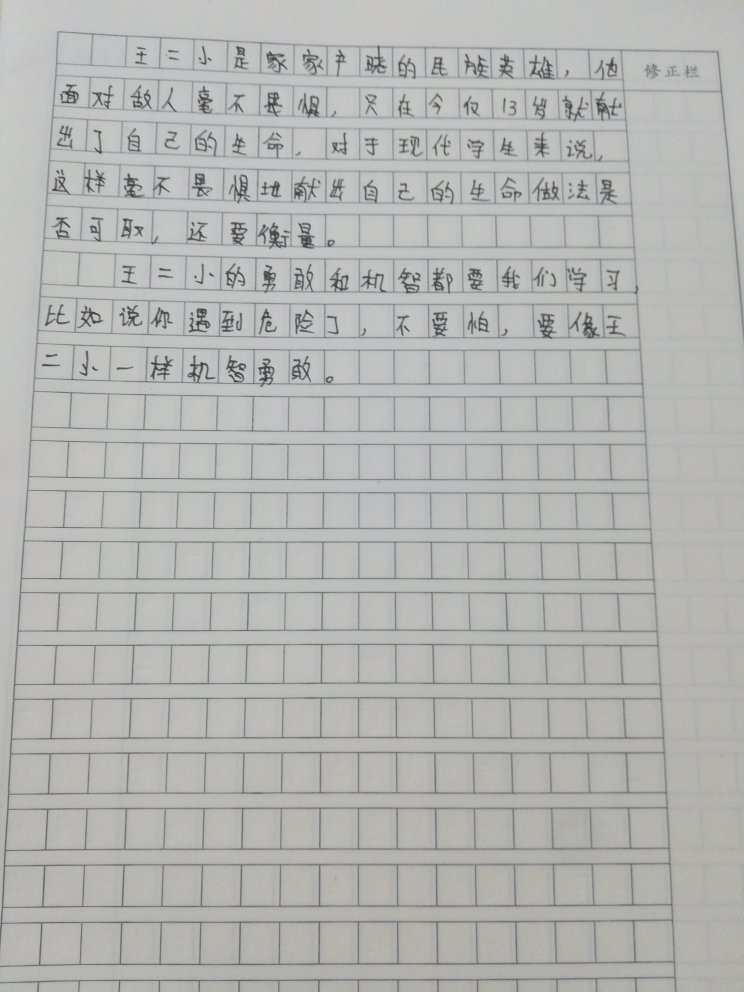 王二小是家家户晓的民族英雄，他
修正栏
面对敌人毫不畏惧，只在今仅13岁就献
出了自己的生命，对于现代学生来说，
这样毫不畏惧地献出自己的生命做法是
否可取，还要衡量。
王二小的勇敢和机智都要我们学习，
比如说你遇到危险了，不要怕，要像王
二小一样机智勇敢。